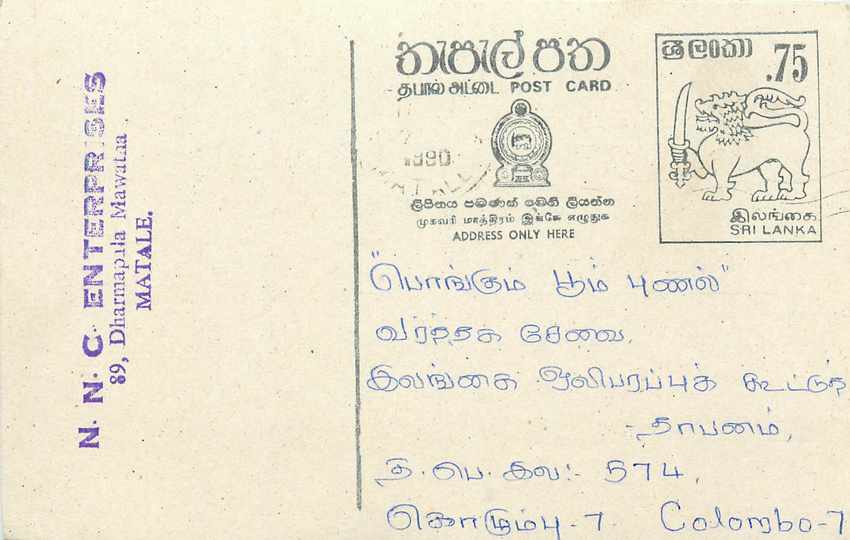 N. N. C. ENTERPRISES
89, Dharmapala Mawatha
MATALE.
තැපැල් පත
தபால் அட்டை POST CARD
1990
ලිපිනය පමණක් මෙහි ලියන්න
முகவரி மாத்திரம் இங்கே எழுதுக
ADDRESS ONLY HERE
ශ්‍රී ලංකා .75
இலங்கை
SRI LANKA
"பொங்கும் பூம் புனல்"
வர்த்தக சேவை,
இலங்கை ஒலிபரப்புக் கூட்டுத்
தாபனம்,
த. பெ. இல:- 574,
கொழும்பு - 7. Colombo-7